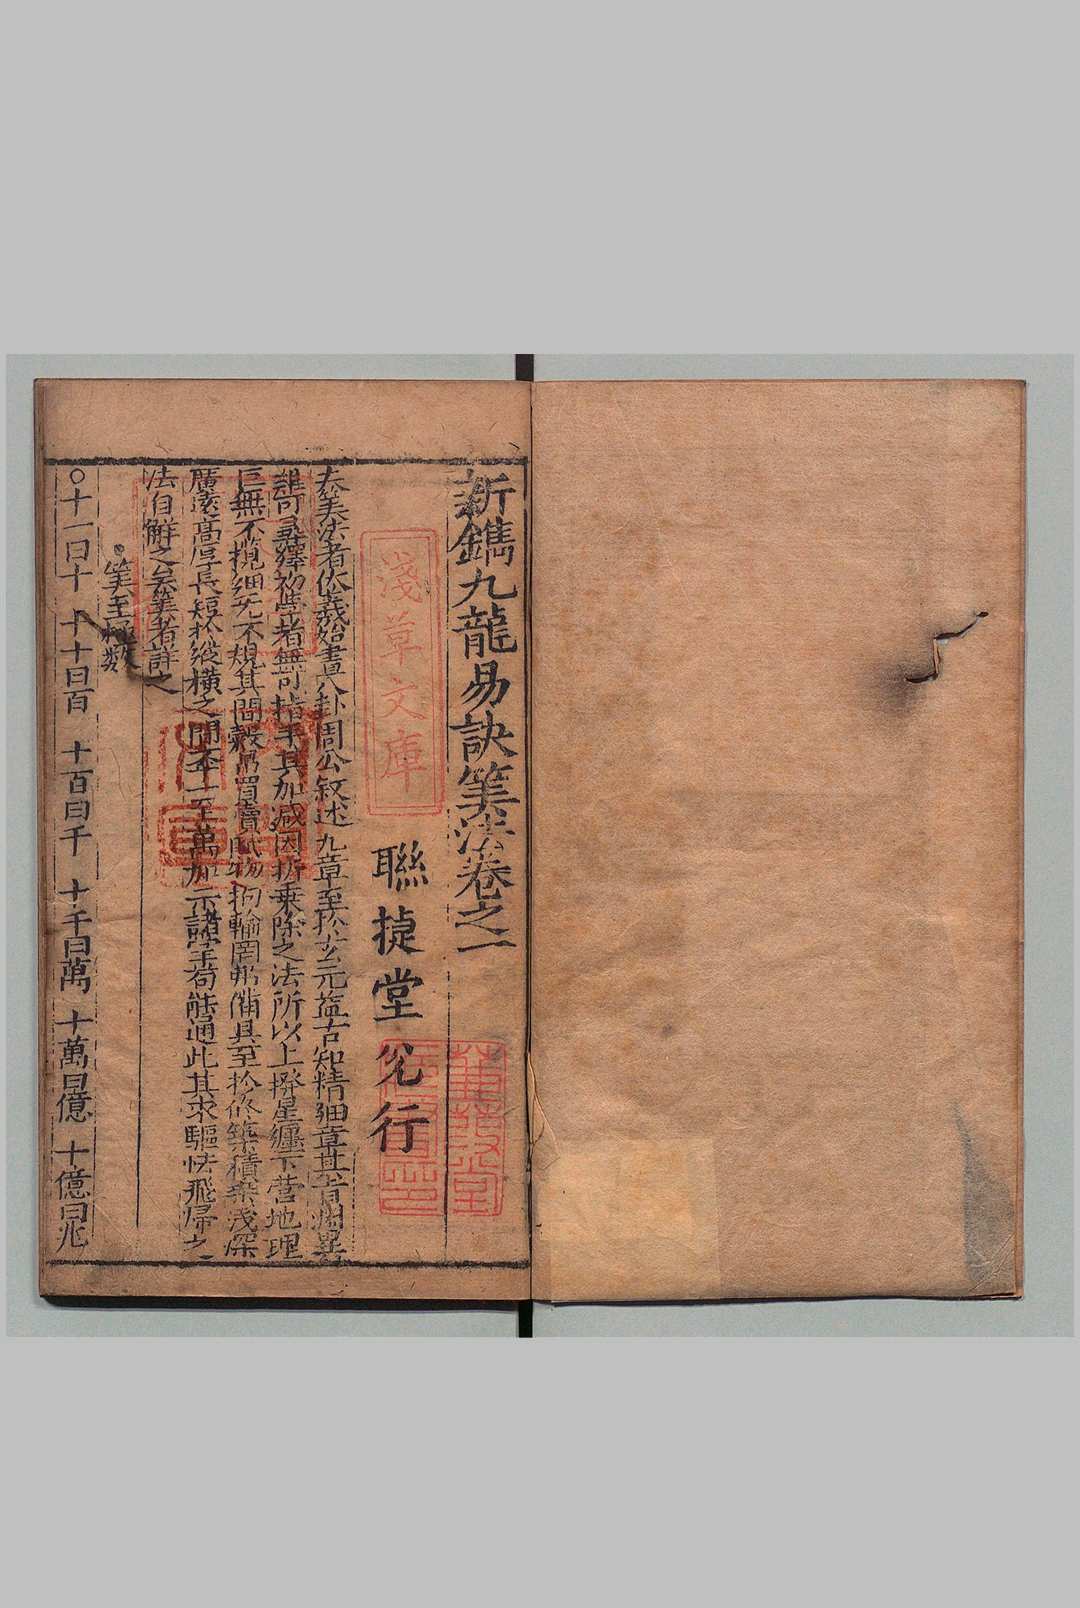 新鐫九龍易訣筭法卷之一
聯捷堂 行
淺草文庫
夫筭法者伏義始畫八卦周公叙述九章至於玄元益古知精細章其
誰可尋繹初學者無可指手其加減因折乗除之法所以上揆星纏下营地理
巨無不攬細无不規其間糓 買賣 物 輸 備具至於修築積 淺深
廣遠高厚長短於縱横之間 一至萬 示諸學 苟能通此其求驅怯飛歸之
法自觧之矣筭者詳之
筭至極数
〇十一曰十 十十曰百 十百曰千 十千曰萬 十萬曰億 十億曰兆